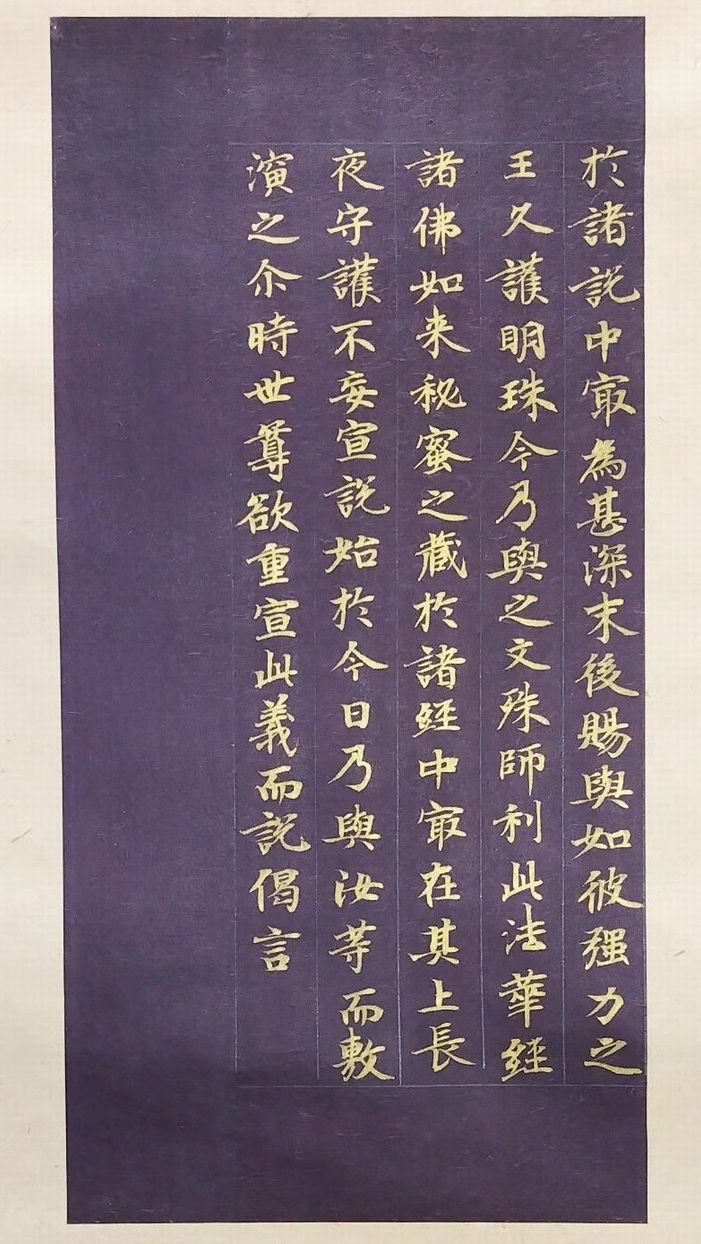 於諸説中冣為甚深末後賜與如彼强力之
王久護明珠今乃與之文殊師利此法華經
諸佛如来秘蜜之藏於諸經中冣在其上長
夜守護不妄宣説始於今日乃與汝等而敷
演之尒時世尊欲重宣此義而説偈言